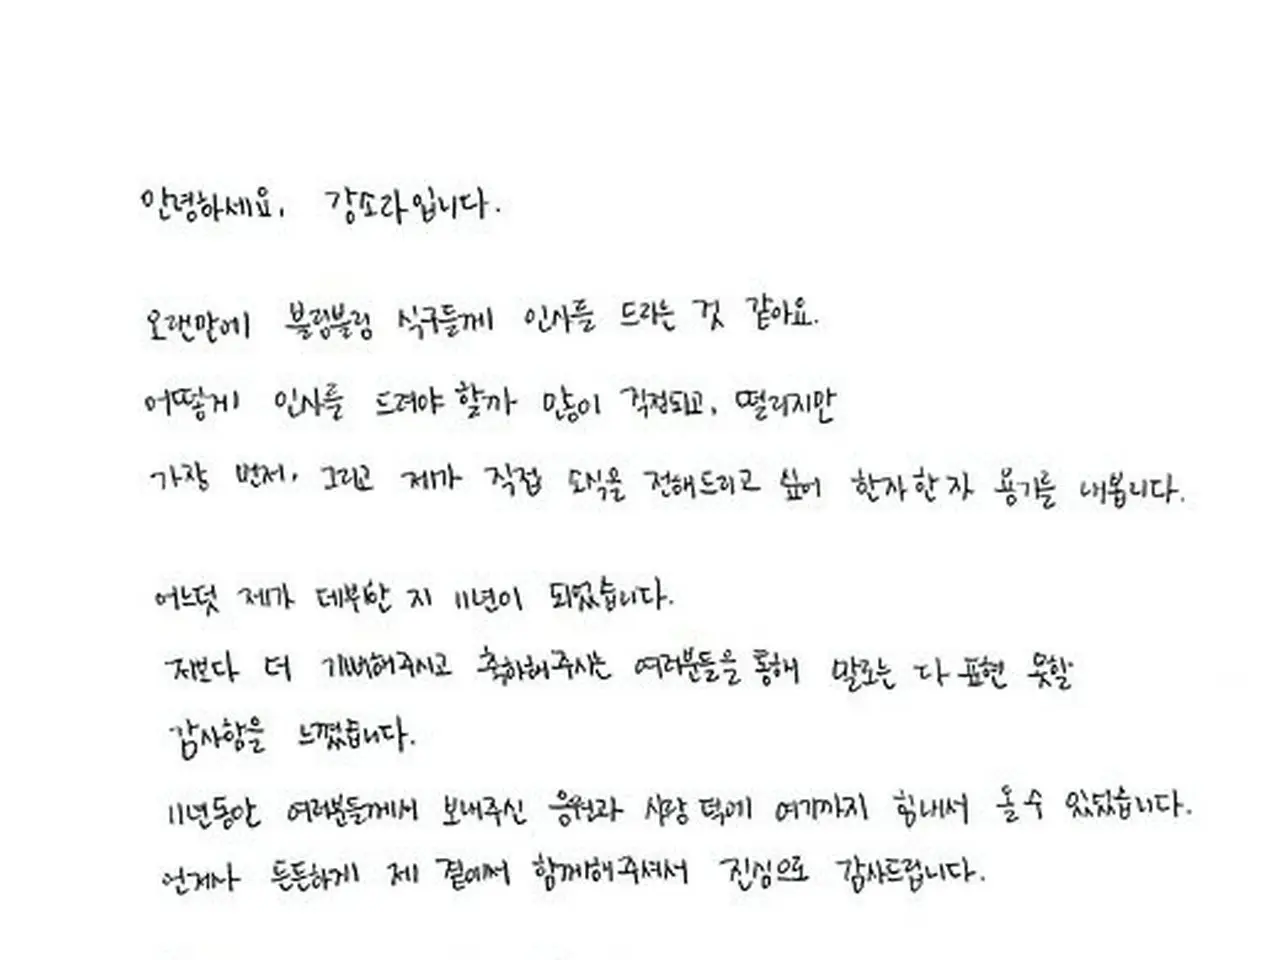 안녕하세요, 강소라입니다.
오랜만에 블링블링 식구들께 인사를 드리는 것 같아요.
어떻게 인사를 드려야 할까 많이 걱정되고, 떨리지만
가장 먼저, 그리고 제가 직접 소식을 전해드리고 싶어 한자한자 용기를 내봅니다.
어느덧 제가 데뷔한 지 11년이 되었습니다.
저보다 더 기뻐해주시고 축하해주시는 여러분들을 통해 말로는 다 표현 못할
감사함을 느꼈습니다.
11년동안 여러분들께서 보내주신 응원과 사랑 덕에 여기까지 힘내서 올 수 있었습니다.
언제나 든든하게 제 곁에서 함께해주셔서 진심으로 감사드립니다.